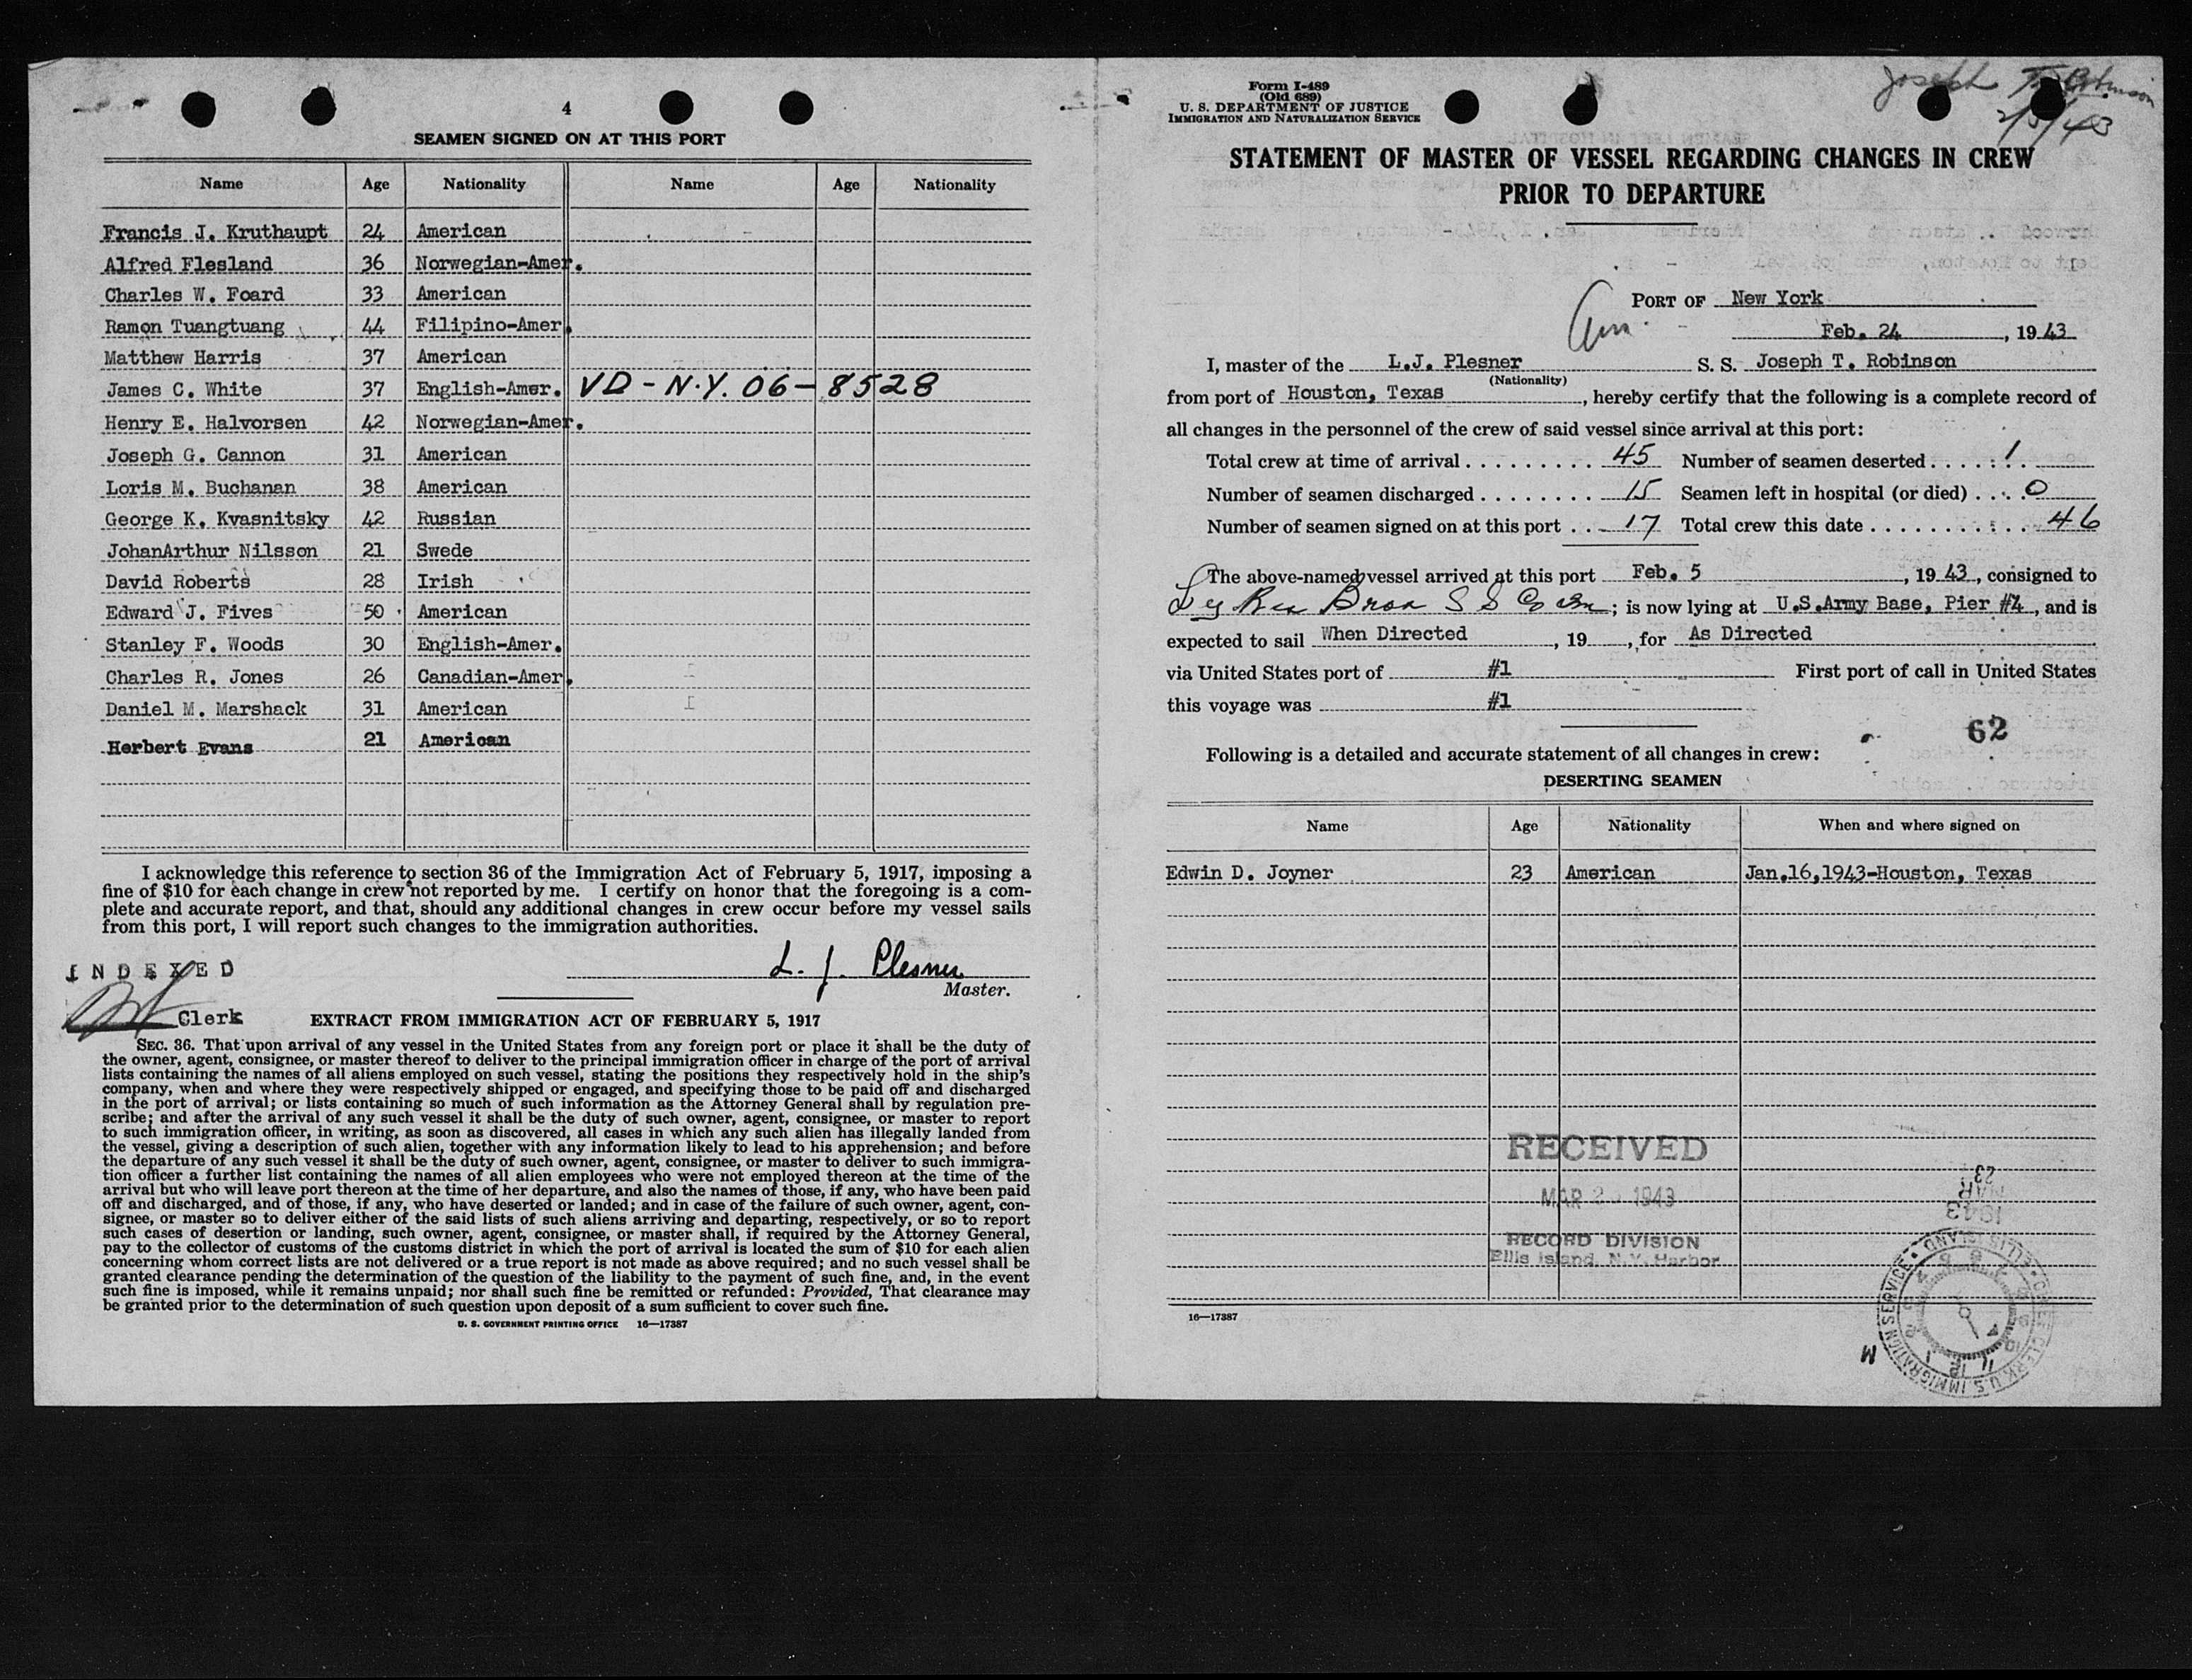 4
SEAMEN SIGNED ON AT THIS PORT
Name Age Nationality Name Age Nationality
Francis J. Kruthaupt 24 American
Alfred Flesland 36 Norwegian-Amer.
Charles W. Foard 33 American
Ramon Tuangtuang 44 Filipino-Amer.
Matthew Harris 37 American
James C. White 37 English-Amer. VD-N.Y. 06-8528
Henry E. Halvorsen 42 Norwegian-Amer.
Joseph G. Cannon 31 American
Loris M. Buchanan 38 American
George K. Kvasnitsky 42 Russian
JohanArthur Nilsson 21 Swede
David Roberts 28 Irish
Edward J. Fives 50 American
Stanley F. Woods 30 English-Amer.
Charles R. Jones 26 Canadian-Amer.
Daniel M. Marshack 31 American
Herbert Evans 21 American
I acknowledge this reference to section 36 of the Immigration Act of February 5, 1917, imposing a
fine of $10 for each change in crew not reported by me. I certify on honor that the foregoing is a com-
plete and accurate report, and that, should any additional changes in crew occur before my vessel sails
from this port, I will report such changes to the immigration authorities.
INDEXED
L. J. Plesner
Master.
Clerk
EXTRACT FROM IMMIGRATION ACT OF FEBRUARY 5, 1917
SEC. 36. That upon arrival of any vessel in the United States from any foreign port or place it shall be the duty of
the owner, agent, consignee, or master thereof to deliver to the principal immigration officer in charge of the port of arrival
lists containing the names of all aliens employed on such vessel, stating the positions they respectively hold in the ship's
company, when and where they were respectively shipped or engaged, and specifying those to be paid off and discharged
in the port of arrival; or lists containing so much of such information as the Attorney General shall by regulation pre-
scribe; and after the arrival of any such vessel it shall be the duty of such owner, agent, consignee, or master to report
to such immigration officer, in writing, as soon as discovered, all cases in which any such alien has illegally landed from
the vessel, giving a description of such alien, together with any information likely to lead to his apprehension; and before
the departure of any such vessel it shall be the duty of such owner, agent, consignee, or master to deliver to such immigra-
tion officer a further list containing the names of all alien employees who were not employed thereon at the time of the
arrival but who will leave port thereon at the time of her departure, and also the names of those, if any, who have been paid
off and discharged, and of those, if any, who have deserted or landed; and in case of the failure of such owner, agent, con-
signee, or master so to deliver either of the said lists of such aliens arriving and departing, respectively, or so to report
such cases of desertion or landing, such owner, agent, consignee, or master shall, if required by the Attorney General,
pay to the collector of customs of the customs district in which the port of arrival is located the sum of $10 for each alien
concerning whom correct lists are not delivered or a true report is not made as above required; and no such vessel shall be
granted clearance pending the determination of the question of the liability to the payment of such fine, and, in the event
such fine is imposed, while it remains unpaid; nor shall such fine be remitted or refunded: Provided, That clearance may
be granted prior to the determination of such question upon deposit of a sum sufficient to cover such fine.
U. S. GOVERNMENT PRINTING OFFICE 16—17387
Form I-489
(Old 689)
U. S. DEPARTMENT OF JUSTICE
IMMIGRATION AND NATURALIZATION SERVICE
Joseph T. Robinson
2/5/43
STATEMENT OF MASTER OF VESSEL REGARDING CHANGES IN CREW
PRIOR TO DEPARTURE
Am.
PORT OF New York
Feb. 24, 1943
I, master of the L.J. Plesner S. S. Joseph T. Robinson
(Nationality)
from port of Houston, Texas, hereby certify that the following is a complete record of
all changes in the personnel of the crew of said vessel since arrival at this port:
Total crew at time of arrival . . . . . . . . . 45 Number of seamen deserted . . . . . . 1
Number of seamen discharged . . . . . . . . 15 Seamen left in hospital (or died) . . . . 0
Number of seamen signed on at this port . . . 17 Total crew this date . . . . . . . . . . . . 46
The above-named vessel arrived at this port Feb. 5, 1943, consigned to
Bros S S Co; is now lying at U.S.Army Base, Pier #4, and is
expected to sail When Directed, 19, for As Directed
via United States port of #1 First port of call in United States
this voyage was #1
62
Following is a detailed and accurate statement of all changes in crew:
DESERTING SEAMEN
Name Age Nationality When and where signed on
Edwin D. Joyner 23 American Jan.16,1943-Houston, Texas
RECEIVED
MAR 1943
RECORD DIVISION
Ellis Island, N.Y. Harbor
23
MAR
1943
16—17387
M
CHIEF CLERK U.S. IMMIGRATION SERVICE • ELLIS ISLAND •